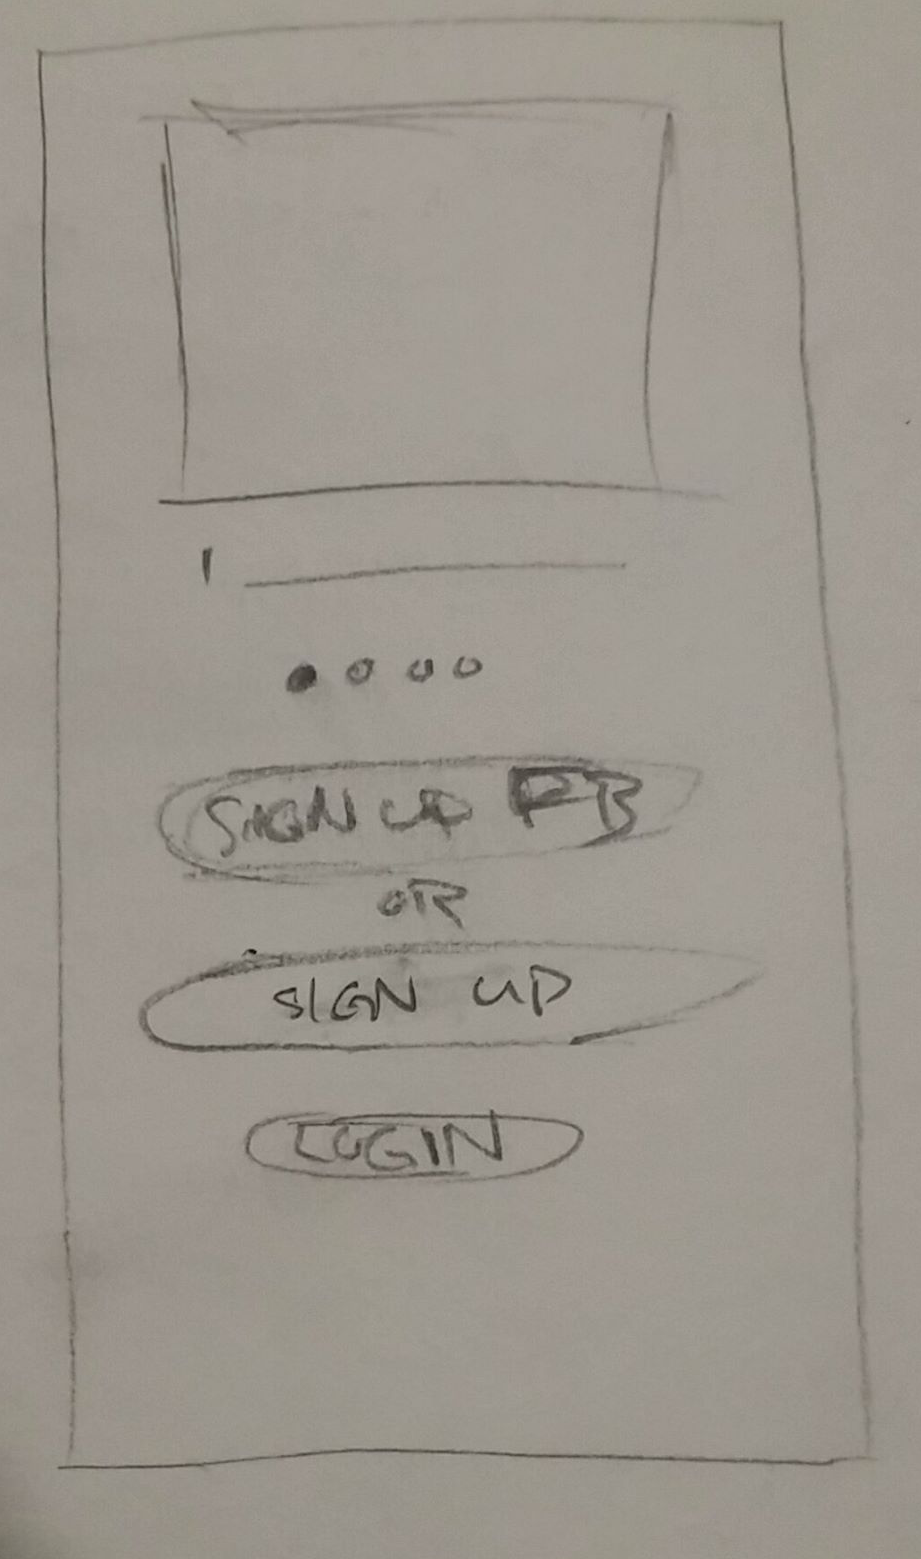 SIGN UP FB
OR
SIGN UP
LOGIN